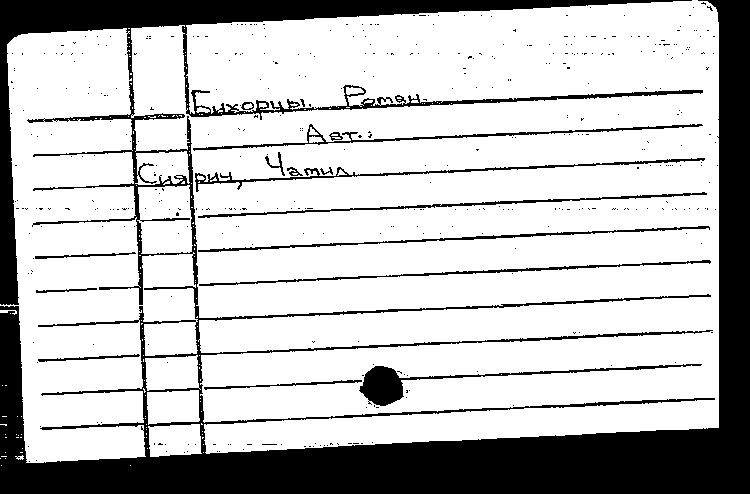 Бихорцы. Роман.
Авт.:
Сиярич, Чамил.